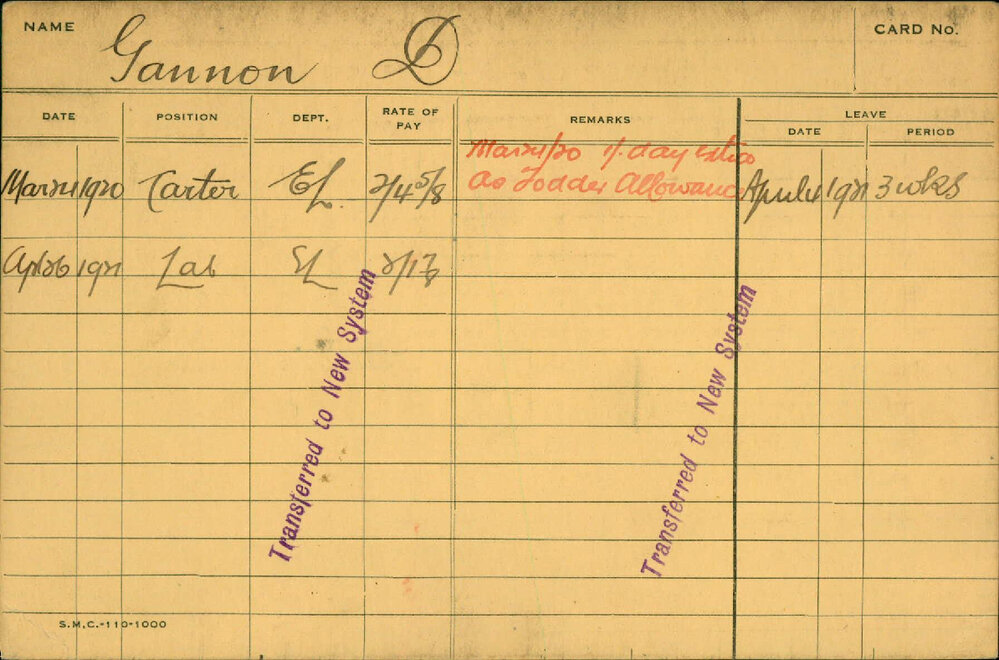 NAME Gannon D CARD No.
DATE POSITION DEPT. RATE OF PAY REMARKS LEAVE
DATE PERIOD
Mar 1/20 1/. day extra
Mar 1920 Carter EL. as Fodder Allowance April 4 1921 3 wks
Apl 26 1921 Lab EL
Transferred to New System
Transferred to New System
S.M.C.-110-1000